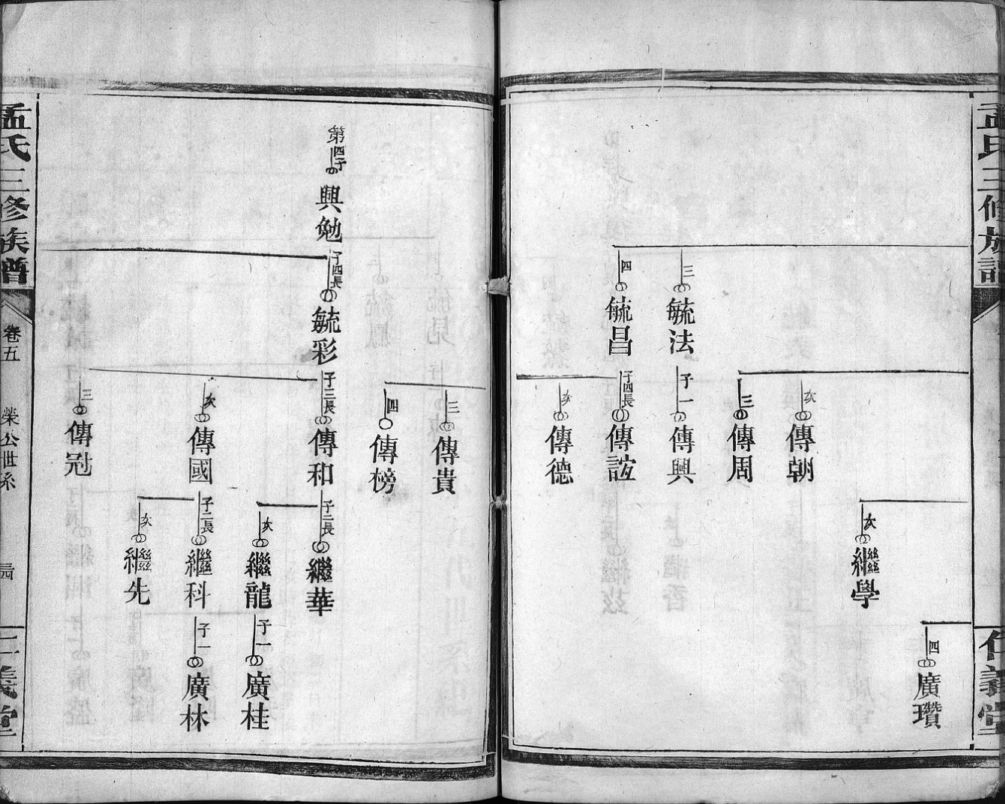 孟氏三修族譜
仁義堂
四
廣瓚
次
繼學
次
傳朝
三
傳周
三
毓法
子一
傳興
四
毓昌
子四長
傳詃
次
傳德
三
傳貴
四
傳榜
第四子
興勉
子四長
毓彩
子三長
傳和
子二長
繼華
次
繼龍
子一
廣桂
次
傳國
子二長
繼科
子一
廣林
次
繼先
三
傳冠
孟氏三修族譜
卷五
榮公世系
仁義堂